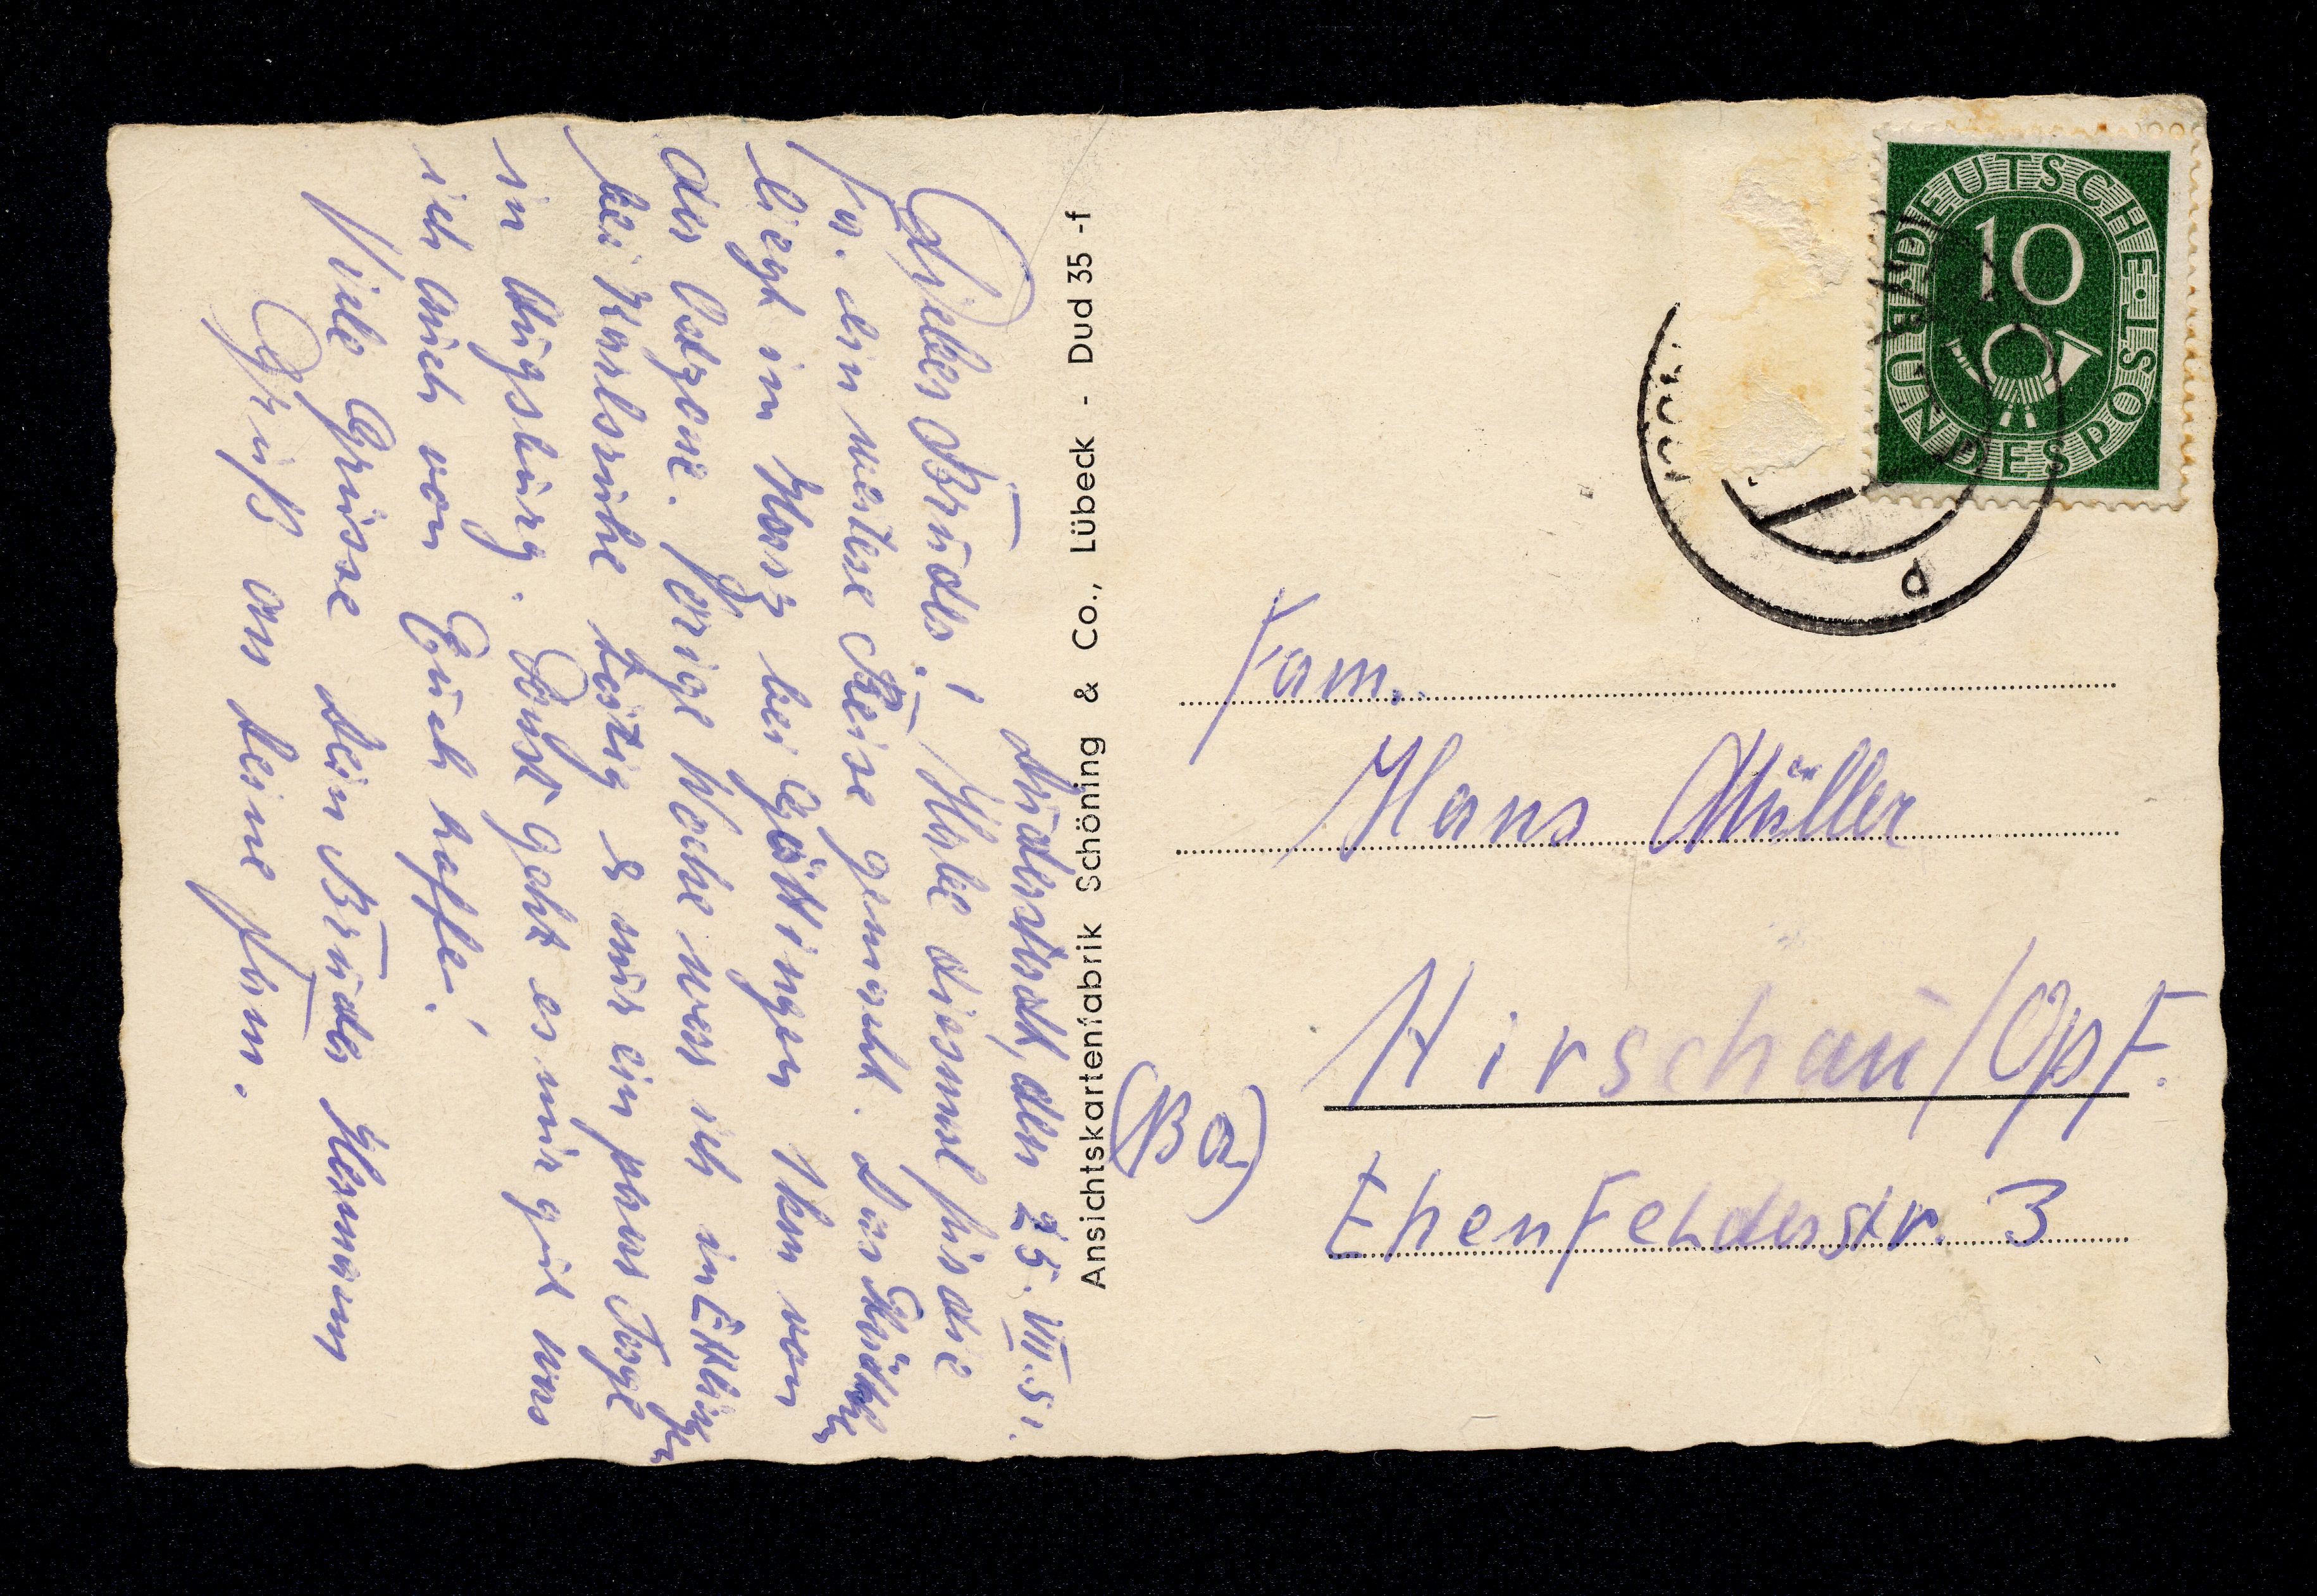 Duderstadt, den 25.VII.51.
Lieber Bruder! Habe diesmal für die
Fa. ein weitere Reise gemacht. Das Städtchen
liegt im Harz bei Göttingen 1 km von
der Ostzone. Vorige Woche war ich in Ettlingen
bei Karlsruhe tätig & nur ein paar Tage
in Augsburg. Sonst geht es mir gut was
ich auch von Euch hoffe!
Viele Grüsse dein Bruder Hermann
Gruß an deine Fam.
Ansichtskartenfabrik Schöning & Co., Lübeck - Dud 35 -f
DEUTSCHE BUNDESPOST
10
d
Fam.
Hans Müller
Hirschau/Opf.
(Ba)
Ehenfelderstr. 3